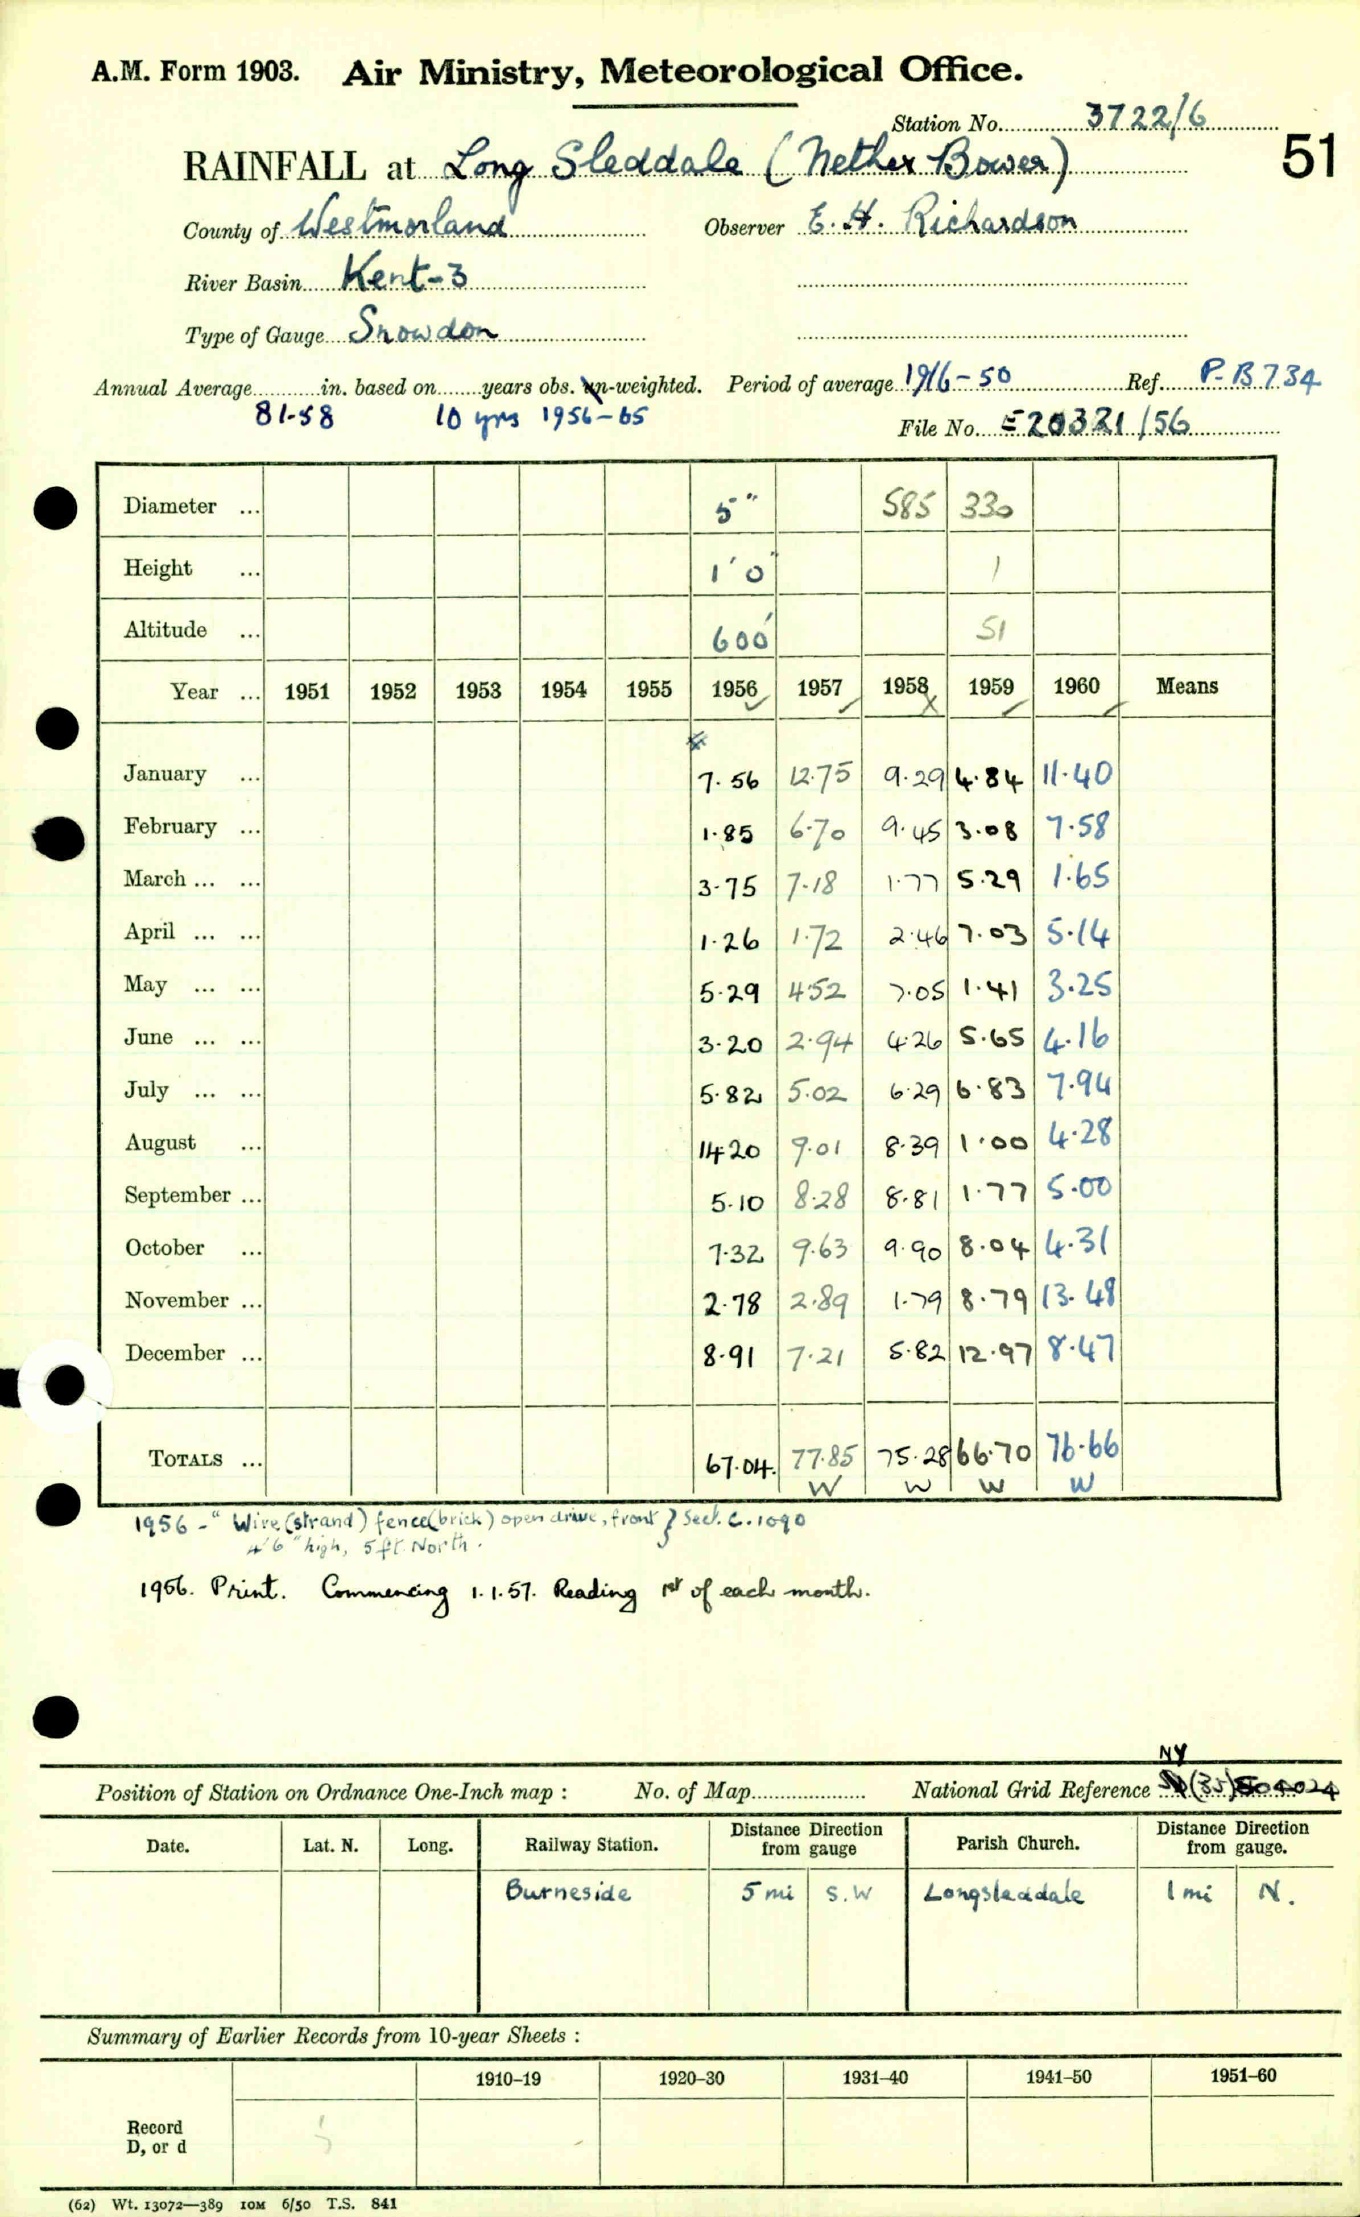 A.M. Form 1903. Air Ministry, Meteorological Office.
Station No. 3722/6
51
RAINFALL at Long Sleddale (Nether Bower)
County of Westmorland Observer E. H. Richardson
River Basin Kent-3
Type of Gauge Snowdon
Annual Average in. based on years obs. un-weighted. Period of average 1916-50 Ref. P-B734
81.58 10 yrs 1956-65
File No. E20321/56
Diameter ... 5" 585 330
Height ... 1' 0" 1
Altitude ... 600' 51
Year ... 1951 1952 1953 1954 1955 1956 1957 1958 1959 1960 Means
January ... 7.56 12.75 9.29 4.84 11.40
February ... 1.85 6.70 9.45 3.08 7.58
March ... ... 3.75 7.18 1.77 5.29 1.65
April ... ... 1.26 1.72 2.46 7.03 5.14
May ... ... 5.29 4.52 7.05 1.41 3.25
June ... ... 3.20 2.94 4.26 5.65 4.16
July ... ... 5.82 5.02 6.29 6.83 7.94
August ... 14.20 9.01 8.39 1.00 4.28
September ... 5.10 8.28 8.81 1.77 5.00
October ... 7.32 9.63 9.90 8.04 4.31
November ... 2.78 2.89 1.79 8.79 13.48
December ... 8.91 7.21 5.82 12.97 8.47
TOTALS ... 67.04 77.85 75.28 66.70 76.66
W W W W
1956 - "Wire (strand) fence (brick) open drive, front } Sect. C. 1090
4'6" high, 5 ft. North.
1956. Print. Commencing 1.1.57. Reading 1st of each month.
NY
Position of Station on Ordnance One-Inch map : No. of Map National Grid Reference (35) 504024
Date. Lat. N. Long. Railway Station. Distance from Direction gauge Parish Church. Distance from Direction gauge.
Burneside 5 mi S.W Longsleddale 1 mi N.
Summary of Earlier Records from 10-year Sheets :
1910–19 1920–30 1931–40 1941–50 1951–60
Record
D, or d
(62) Wt. 13072—389 10M 6/50 T.S. 841